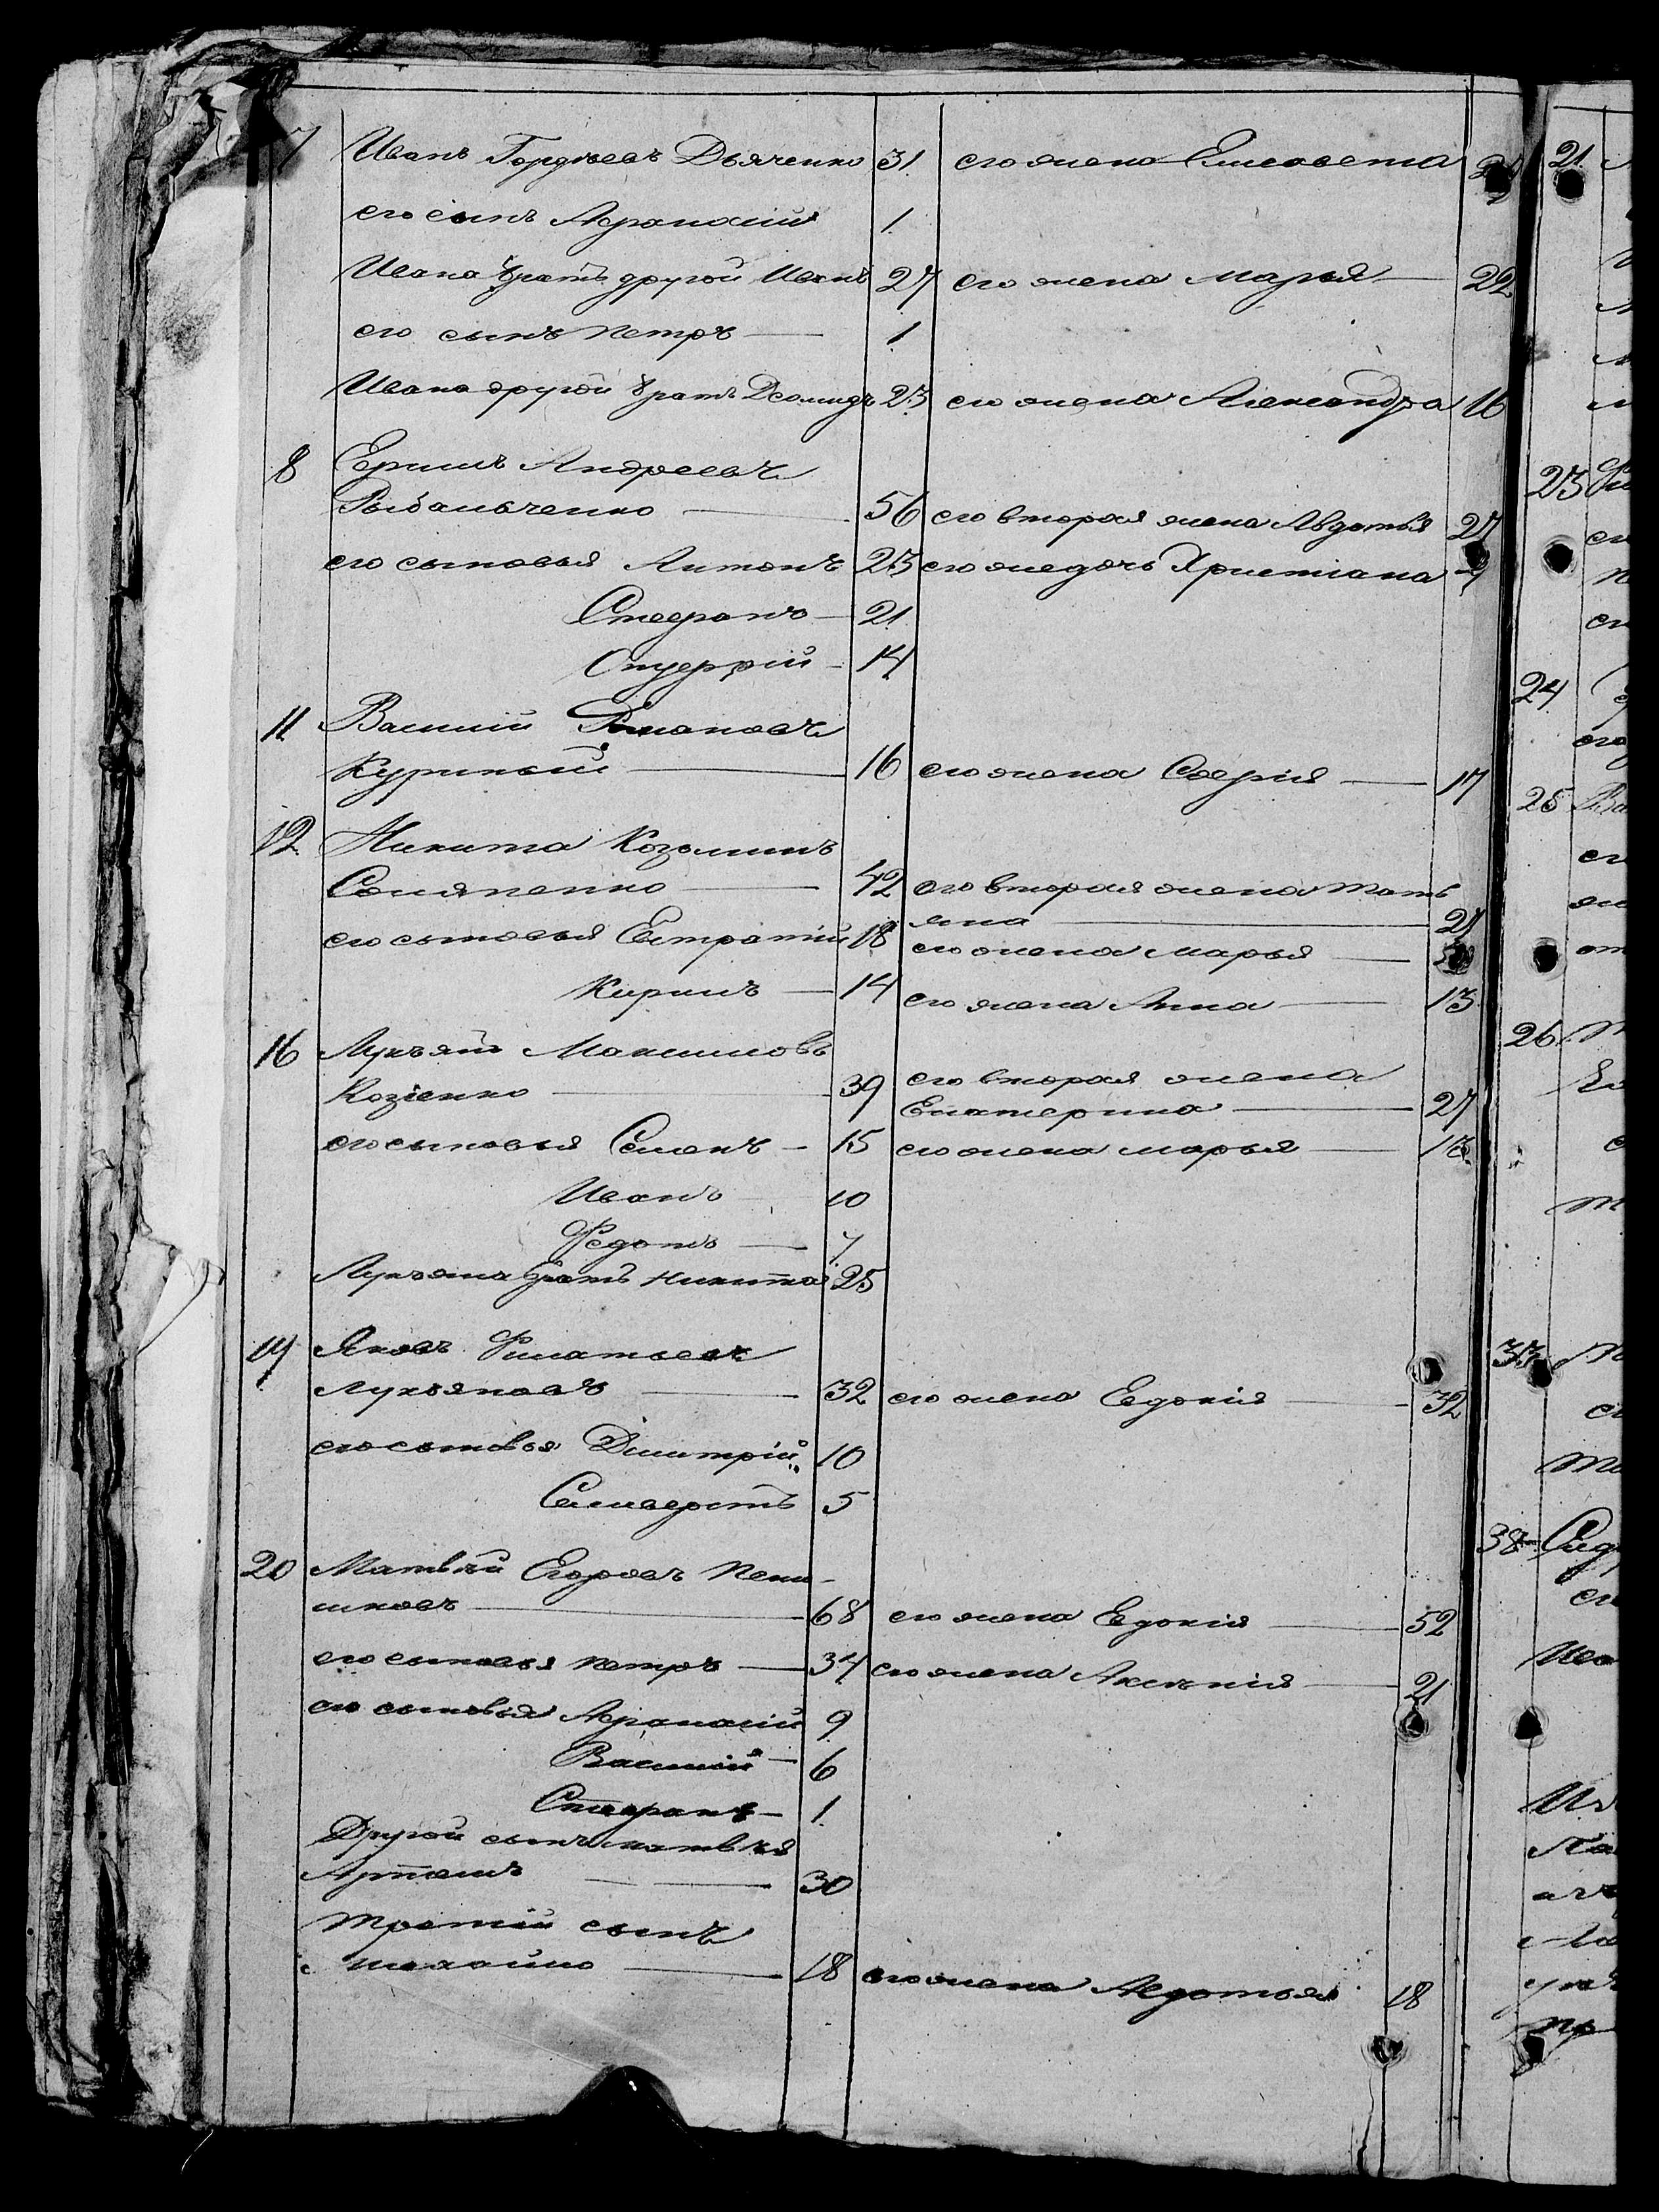 7 Иванъ Гордѣевъ Дьяченко 31. его жена Елисавета
его сынъ Афанасій 1.
Ивана братъ другой Иванъ 27 его жена Марья 22
его сынъ Петръ 1
Ивана другой братъ Деомидъ 23 его жена Александра 16
8 Ефимъ Андреевъ
Рыбальченко 56 его вторая жена Авдотья 27
его сыновья Антонъ 23 его же дочь Христіана
Стефанъ 21
Онуфрій 14
11 Василій Романовъ
Куриный 16 его жена Софія 17
12 Никита Козьминъ
Соляненко 42 его вторая жена Тать
яна 27
его сыновья Евстратій 18 его жена Марья
Кирилъ 14 его жена Анна 13
16 Лукъянъ Максимовъ
Козіенко 39 его вторая жена
Екатерина 27
его сыновья Семенъ 15 его жена Марья
Иванъ 10
Федотъ 7
Лукъяна братъ Никита 25
19 Яковъ Филатьевъ
Лукьяновъ 32 его жена Евдокія 32
его сыновья Димитрій 10
Селиверстъ 5
20 Матвѣй Егоровъ Пени-
шковъ 68 его жена Евдокія 52
его сыновья Петръ 34 его жена Аксенія 21
его сыновья Афанасій 9
Василій 6
Стефанъ 1.
Другой сынъ Матвѣя
Артемъ 30
Третій сынъ
Михайло 18 его жена Авдотья 18
21.
23
24
25
26
33
38